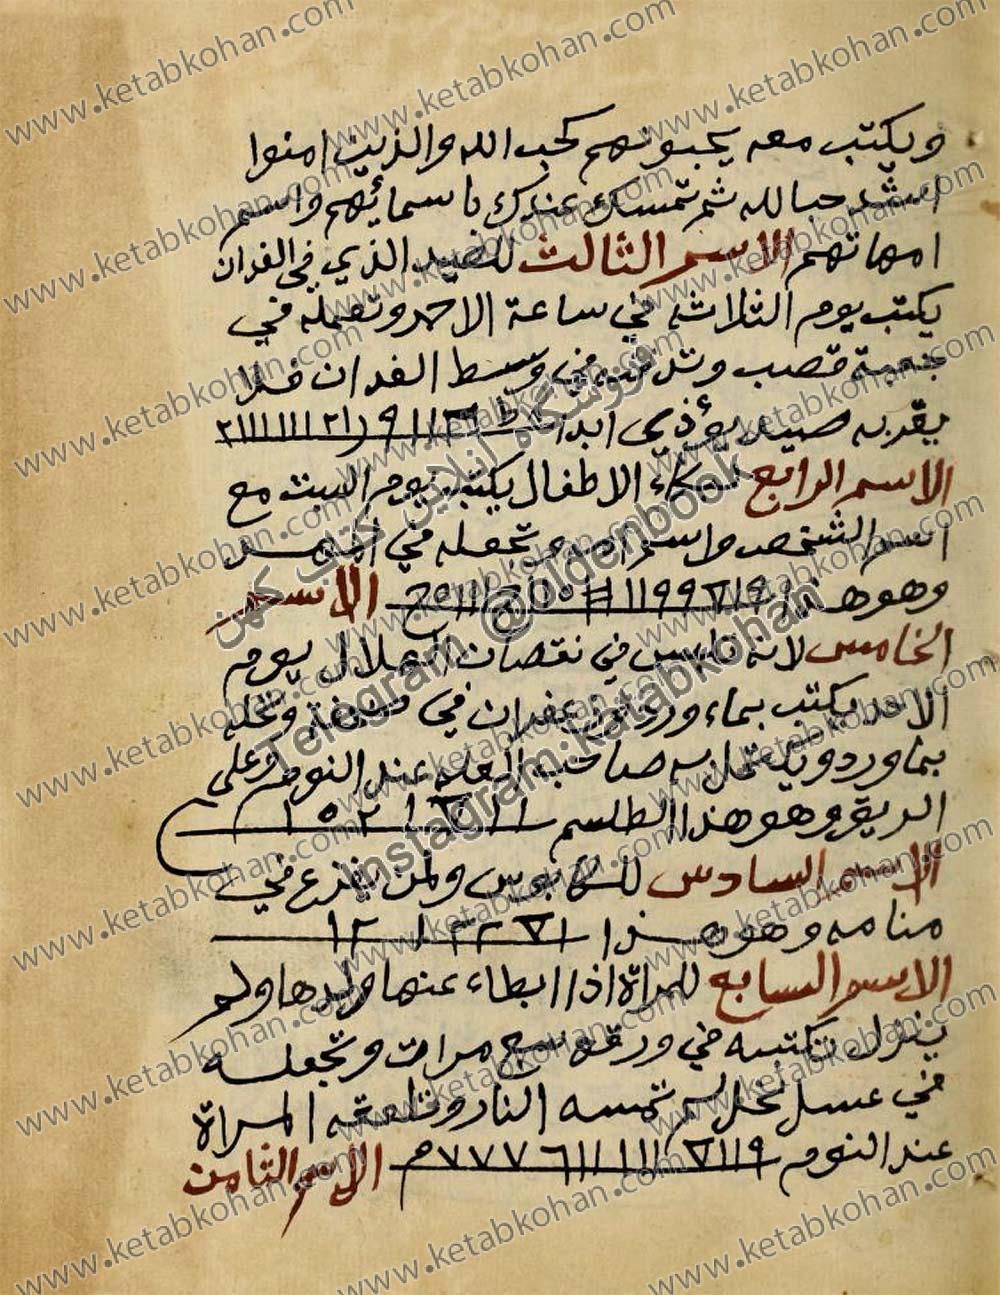 ويكتب معه يحبونهم كحب الله والذين امنوا
اشد حبا لله ثم تمسك عندك باسمائهم واسم
امهاتهم الاسم الثالث للصيد الذي في الفدان
يكتب يوم الثلاثه في ساعة الاحد وتعمله في
جعبة قصب وتدفنه في وسط الفدان فلا
يقربه صيد يؤذي ابدا
الاسم الرابع لبكاء الاطفال يكتب يوم السبت مع
اسم الشخص واسم امه وتجعله في المهد
وهو هذا الاسم
الخامس لانه في نقصان الهلال يوم
الاحد يكتب بماء ورد وزعفران في وتحله
بماورد ويكتحل به صاحب العله عند النوم وعلى
الريق وهو هذا الطلسم ١٥٢١
الاسم السادس للكابوس ولمن يفزع في
منامه وهو هذا
الاسم السابع للمراة اذا ابطاء عنها ولدها ولم
ينزل تكتبه في ورقه سبع مرات وتجعله
في عسل نحل لم تمسه النار وتلعقه المراة
عند النوم الاسم الثامن
www.ketabkohan.com
فروشگاه آنلاین کتاب کهن
Telegram: @oldenbook
Instagram: ketabkohan